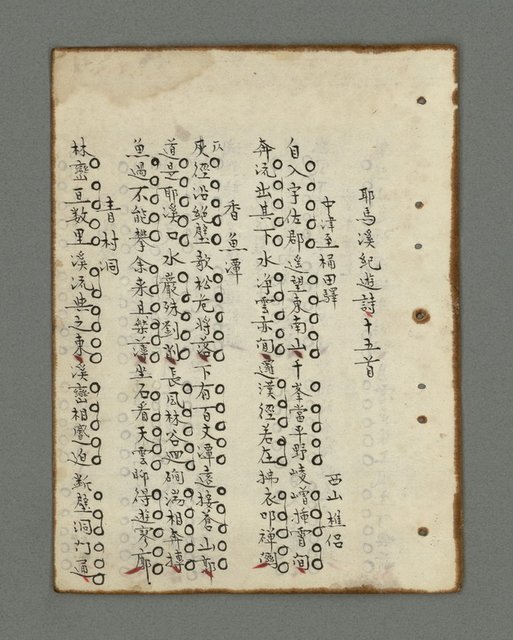 耶馬溪紀遊詩十五首
中津至樋田驛
西山樵侶
自入宇佐郡遙望東南山千峯當平野崚嶒插雲間
奔流出其下水淨雲亦閒邐溪徑若在拂衣叩禪關
香魚潭
灰徑沿絕壁欹松危將落下有百丈潭遠接蒼山
道是耶溪口水嚴殊剖長風林谷四澗湍相奔搏
魚過不能攀余來且舣薄坐石看天雲聊得遊寥廓
青村洞
林巒亙數里溪流與之東溪巒相蹙迫斷壁洞門通